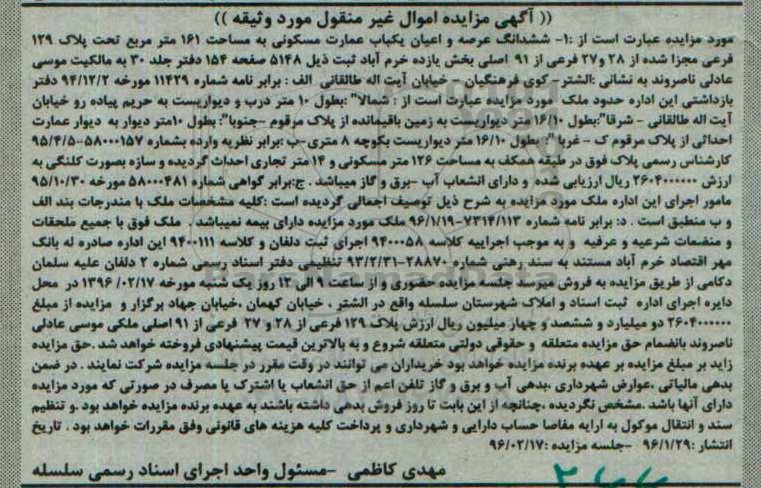 (( آگهی مزایده اموال غیر منقول مورد وثیقه ))
مورد مزایده عبارت است از :۱- ششدانگ عرصه و اعیان یکباب عمارت مسکونی به مساحت ۱۶۱ متر مربع تحت پلاک ۱۲۹
فرعی مجزا شده از ۲۸ و۲۷ فرعی از ۹۱ اصلی بخش یازده خرم آباد ثبت ذیل ۵۱۴۸ صفحه ۱۵۴ دفتر جلد ۳۰ به مالکیت موسی
عادلی ناصروند به نشانی :الشتر- کوی فرهنگیان - خیابان آیت اله طالقانی الف : برابر نامه شماره ۱۱۴۲۹ مورخه ۹۴/۱۲/۲ دفتر
بازداشتی این اداره حدود ملک مورد مزایده عبارت است از : شمالا" :بطول ۱۰ متر درب و دیواریست به حریم پیاده رو خیابان
آیت اله طالقانی - شرقا":بطول ۱۶/۱۰ متر دیواریست به زمین باقیمانده از پلاک مرقوم -جنوبا": بطول ۱۰متر دیوار به دیوار عمارت
احداثی از پلاک مرقوم ک - غربا ":بطول ۱۶/۱۰ متر دیواریست بکوچه ۸ متری-ب :برابر نظریه وارده بشماره ۵۸۰۰۰۱۵۷-۹۵/۴/۵
کارشناس رسمی پلاک فوق در طبقه همکف به مساحت ۱۲۶ متر مسکونی و ۱۴ متر تجاری احداث گردیده و سازه بصورت کلنگی به
ارزش ۲۶۰۴۰۰۰۰۰۰ ریال ارزیابی شده و دارای انشعاب آب -برق و گاز میباشد . ج:برابر گواهی شماره ۵۸۰۰۰۴۸۱ مورخه ۹۵/۱۰/۳۰
مامور اجرای این اداره ملک مورد مزایده به شرح ذیل توصیف اجمالی گردیده است :کلیه مشخصات ملک با مندرجات بند الف
و ب منطبق است . د: برابر نامه شماره ۷۳۱۴/۱۱۳-۹۶/۱/۱۹ ملک مورد مزایده دارای بیمه نمیباشد . ملک فوق با جمیع ملحقات
و منضمات شرعیه و عرفیه و به موجب اجراییه کلاسه ۹۴۰۰۰۵۸ اجرای ثبت دلفان و کلاسه ۹۴۰۰۱۱۱ این اداره صادره له بانک
مهر اقتصاد خرم آباد مستند به سند رهنی شماره ۲۸۸۷۰-۹۳/۲/۳۱ تنظیمی دفتر اسناد رسمی شماره ۲ دلفان علیه سلمان
دکامی از طریق مزایده به فروش میرسد جلسه مزایده حضوری و از ساعت ۹ الی ۱۲ روز یک شنبه مورخه ۱۳۹۶/۰۲/۱۷ در محل
دایره اجرای اداره ثبت اسناد و املاک شهرستان سلسله واقع در الشتر ، خیابان کهمان ،خیابان جهاد برگزار و مزایده از مبلغ
۲۶۰۴۰۰۰۰۰۰ دو میلیارد و ششصد و چهار میلیون ریال ارزش پلاک ۱۲۹ فرعی از ۲۸ و ۲۷ فرعی از ۹۱ اصلی ملکی موسی عادلی
ناصروند بانضمام حق مزایده متعلقه و حقوقی دولتی متعلقه شروع و به بالاترین قیمت پیشنهادی فروخته خواهد شد .حق مزایده
زاید بر مبلغ مزایده بر عهده برنده مزایده خواهد بود خریداران می توانند در وقت مقرر در جلسه مزایده شرکت نمایند . در ضمن
بدهی مالیاتی ،عوارض شهرداری ،بدهی آب و برق و گاز تلفن اعم از حق انشعاب یا اشتراک یا مصرف در صورتی که مورد مزایده
دارای آنها باشد .مشخص نگردیده ،چنانچه از این بابت تا روز فروش بدهی داشته باشند به عهده برنده مزایده خواهد بود .و تنظیم
سند و انتقال موکول به ارایه مفاصا حساب دارایی و شهرداری و پرداخت کلیه هزینه های قانونی وفق مقررات خواهد بود . تاریخ
انتشار :۹۶/۱/۲۹ -جلسه مزایده :۹۶/۰۲/۱۷
مهدی کاظمی -مسئول واحد اجرای اسناد رسمی سلسله